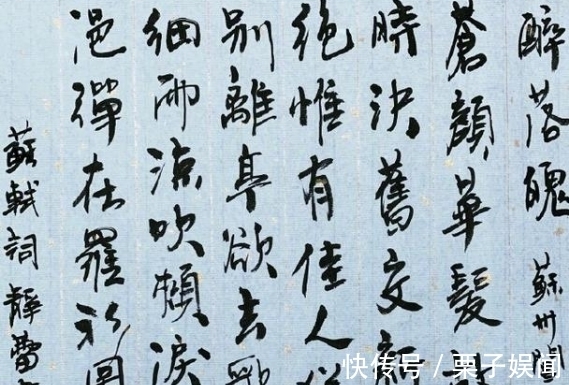 醉落魄 蘇州
蒼顏華髮
時決舊交新
絕惟有佳人
別離亭欲去歌
細雨涼吹頰淚
浥彈在羅衫圖
蘇軾詞 靜蕾
快传号 / 栗子娱闻